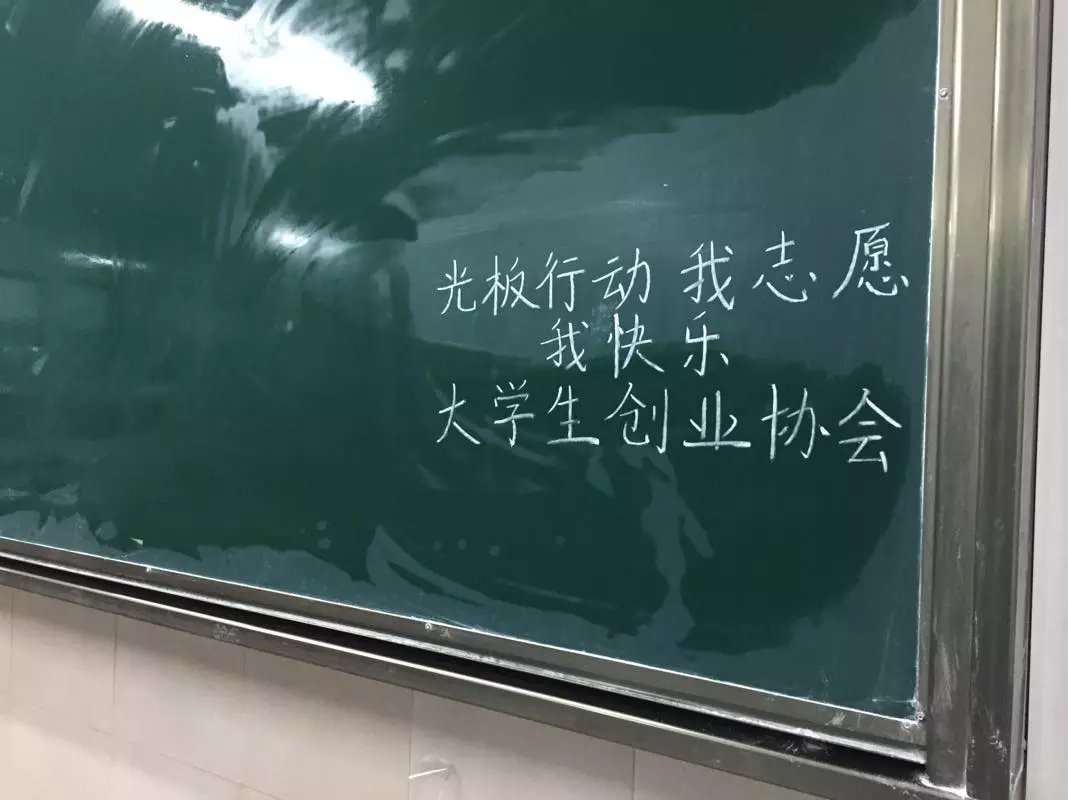 光板行动 我志愿
我快乐
大学生创业协会